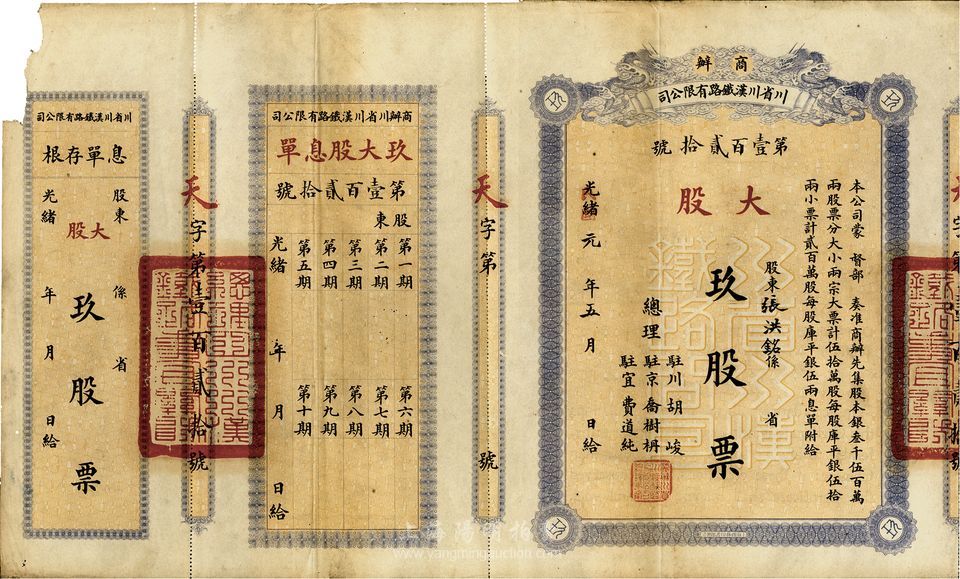 商辦
川省川漢鐵路有限公司
第壹百貳拾號
大股
本公司蒙 督部 奏准商辦先集股本銀叁千伍百萬
兩股票分大小兩宗大票計伍拾萬股每股庫平銀伍拾
兩小票計貳百萬股每股庫平銀伍兩息單附給
股東張洪銘係 省
玖股票
總理
駐川胡峻
駐京喬樹枏
駐宜費道純
光緒元年五月 日給
川省川漢鐵路有限公司
玖
玖
玖
玖
天字第 號
商辦川省川漢鐵路有限公司
玖大股息單
第壹百貳拾號
股東
第一期 第六期
第二期 第七期
第三期 第八期
第四期 第九期
第五期 第十期
光緒 年 月 日給
天字第壹百貳拾號
川省川漢鐵路有限公司
息單存根
股東 係 省
大股
玖股票
光緒 年 月 日給
www.yangmingauction.com